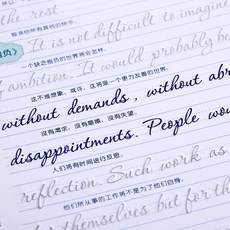 the rest
跟自他所有其他的快乐。
It is not difficult to imagine
一个缺乏抱负的世界将会怎样。
ambition. It would probably be
这不难想象，或许，这将是一个更为友善的世界。
without demands, without abr
没有渴求，没有磨擦，没有失望。
disappointments. People wou
人们将有时间进行反思。
reflection. Such work as
他们所从事的工作将不是为了他们自身，
themselves but for th